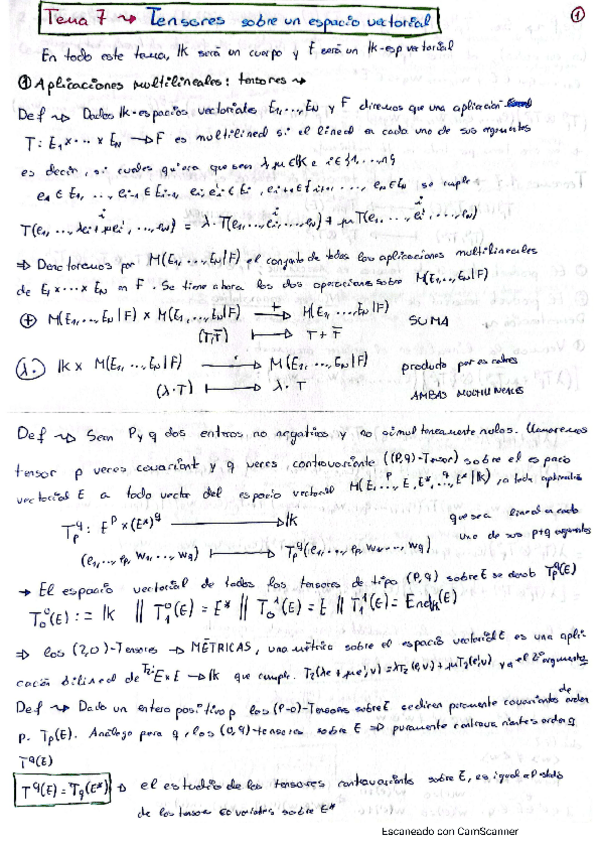 Tema 7 ⇝ Tensores sobre un espacio vectorial
①
En todo este tema, IK será un cuerpo y E será un IK-esp vectorial
① Aplicaciones multilineales: tensores ⇝
Def ⇝ Dados IK-espacios vectoriales E₁, ..., Eₙ y F diremos que una aplicación
T: E₁ × ... × Eₙ → F es multilineal si es lineal en cada uno de sus argumentos
es decir, si cuales quiera que sean λ, μ ∈ IK e i ∈ {1, ..., n}
e₁ ∈ E₁, ..., eᵢ₋₁ ∈ Eᵢ₋₁, eᵢ, eᵢ' ∈ Eᵢ, eᵢ₊₁ ∈ Eᵢ₊₁, ..., eₙ ∈ Eₙ se cumple
T(e₁, ..., λeᵢ + μeᵢ', ..., eₙ) = λ · T(e₁, ..., eᵢ, ..., eₙ) + μ T(e₁, ..., eᵢ', ..., eₙ)
⇒ Denotaremos por M(E₁, ..., Eₙ | F) el conjunto de todas las aplicaciones multilineales
de E₁ × ... × Eₙ en F. Se tiene ahora las dos operaciones sobre M(E₁, ..., Eₙ | F)
⊕ M(E₁, ..., Eₙ | F) × M(E₁, ..., Eₙ | F) —+→ M(E₁, ..., Eₙ | F) SUMA
(T, T̄) ↦ T + T̄
(λ·) IK × M(E₁, ..., Eₙ | F) —·→ M(E₁, ..., Eₙ | F) producto por escalares
(λ · T) ↦ λ · T AMBAS MULTILINEALES
Def ⇝ Sean P y q dos enteros no negativos y no simultaneamente nulos. Llamaremos
tensor p veces covariant y q veces contravariante ((P,q)-Tensor) sobre el espacio
vectorial E a todo vector del espacio vectorial M(E, ..., E, E*, ..., E* | IK), a toda aplicación
T_p^q: E^p × (E*)^q → IK que sea lineal en cada
(e₁, ..., e_p, w₁, ..., w_q) ↦ T_p^q(e₁, ..., e_p, w₁, ..., w_q) uno de sus p+q argumentos
→ El espacio vectorial de todos los tensores de tipo (P,q) sobre E se denota T_p^q(E)
T₀⁰(E) := IK || T₁⁰(E) = E* || T₀¹(E) = E || T₁¹(E) = End_IK(E)
⇒ los (2,0)-Tensores → MÉTRICAS, una métrica sobre el espacio vectorial E es una apli-
cación bilineal de T₂: E × E → IK que cumple. T₂(λe + μe', v) = λT₂(e, v) + μT₂(e', v) y a el 2º argumento
Def ⇝ Dado un entero positivo p los (P-0)-Tensores sobre E se dicen puramente covariantes de orden
p. T_p(E). Análogo para q, los (0,q)-tensores sobre E ⇒ puramente contravariantes orden q
T^q(E)
T^q(E) = T_q(E*) ⇒ el estudio de los tensores contravariante sobre E, es igual al
de los tensores covariantes sobre E*
Escaneado con CamScanner